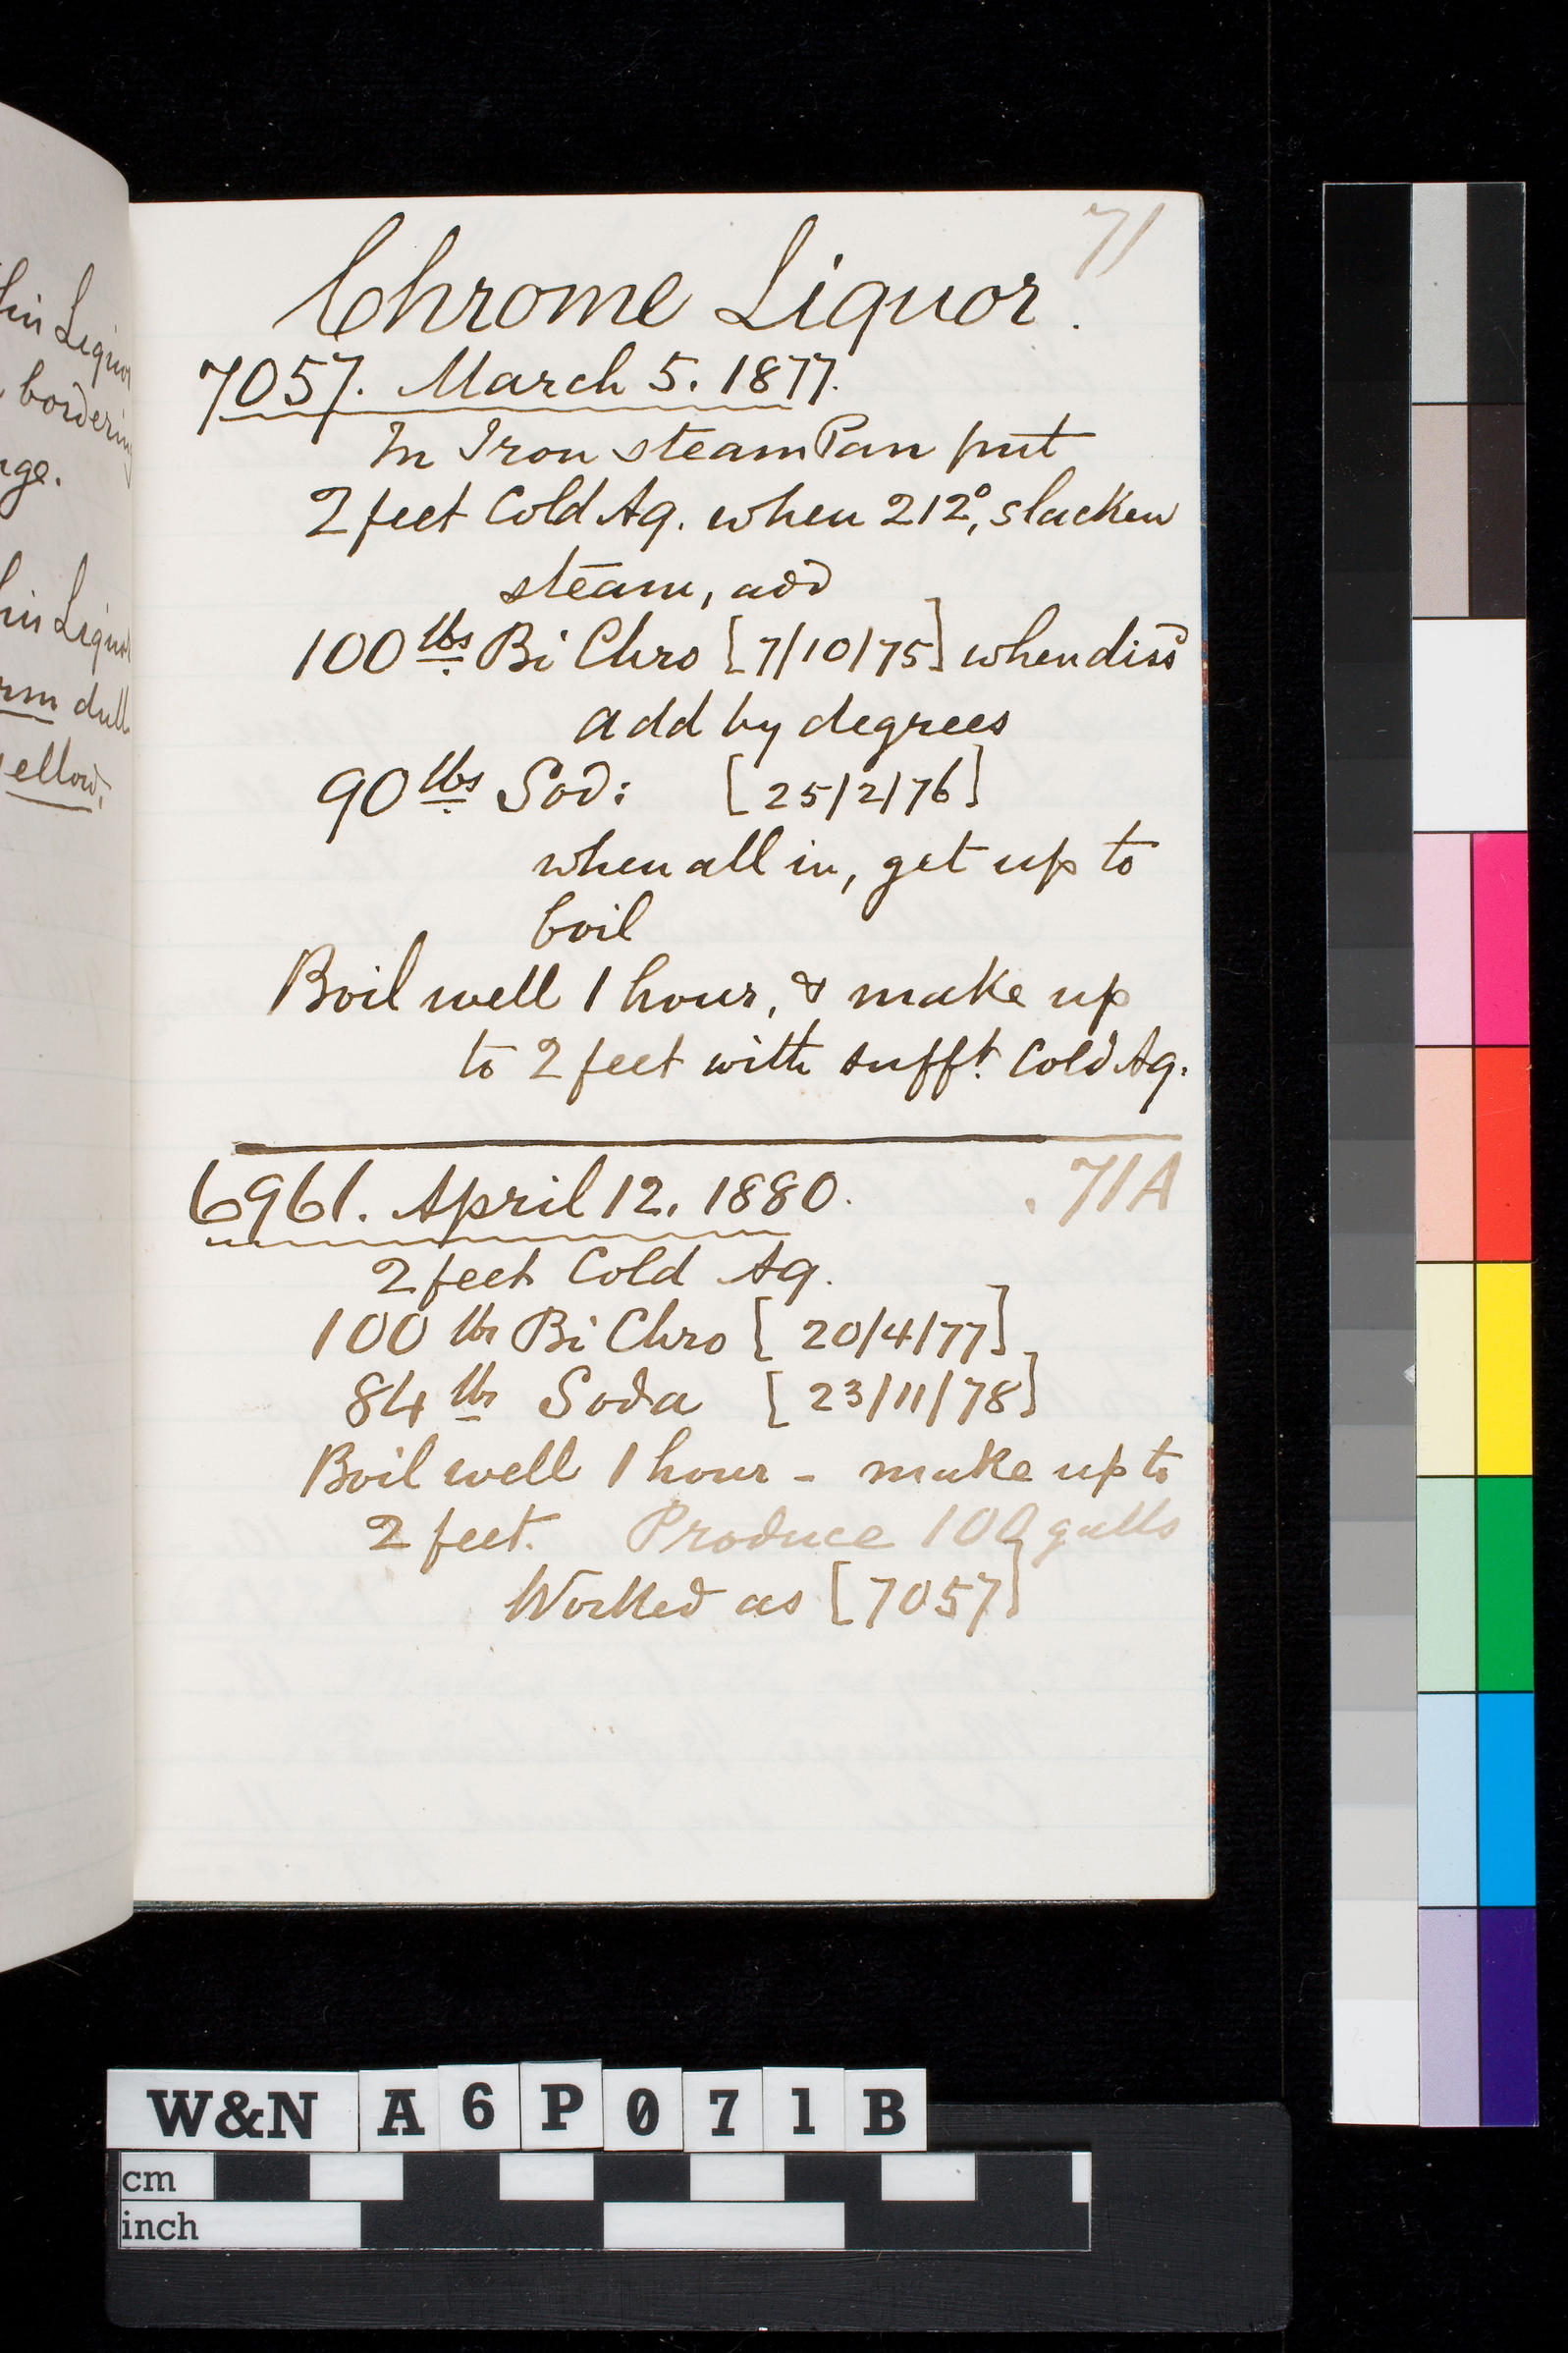 hin Liquor
bordering
nge.
hin Liquor
rm dull
yellow,
71
Chrome Liquor.
7057. March 5. 1877.
In Iron steam Pan put
2 feet Cold Aq. when 212°, slacken
steam, add
100 lbs Bi Chro [7/10/75] when diss
add by degrees
90 lbs Sod: [25/2/76]
when all in, get up to
boil
Boil well 1 hour, & make up
to 2 feet with sufft. Cold Aq.
6961. April 12. 1880. 71A
2 feet Cold Aq.
100 lbs Bi Chro [20/4/77]
84 lbs Soda [23/11/78]
Boil well 1 hour - make up to
2 feet. Produce 100 galls
Worked as [7057]
W&N A6P071B
cm
inch